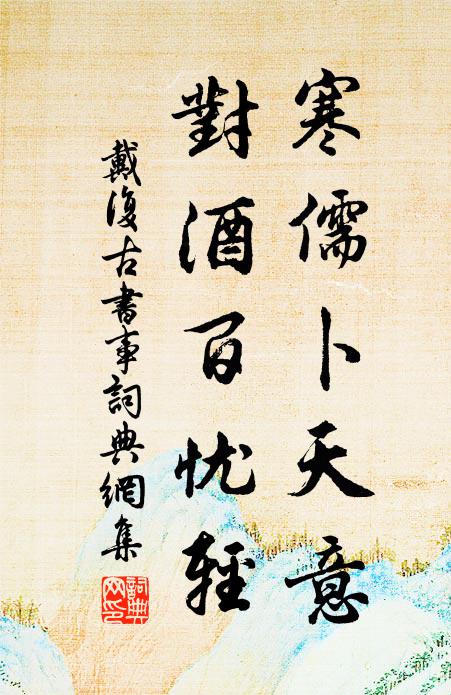 寒儒卜天意
對酒百忧輕
戴復古書事詞典網集
詞典网印